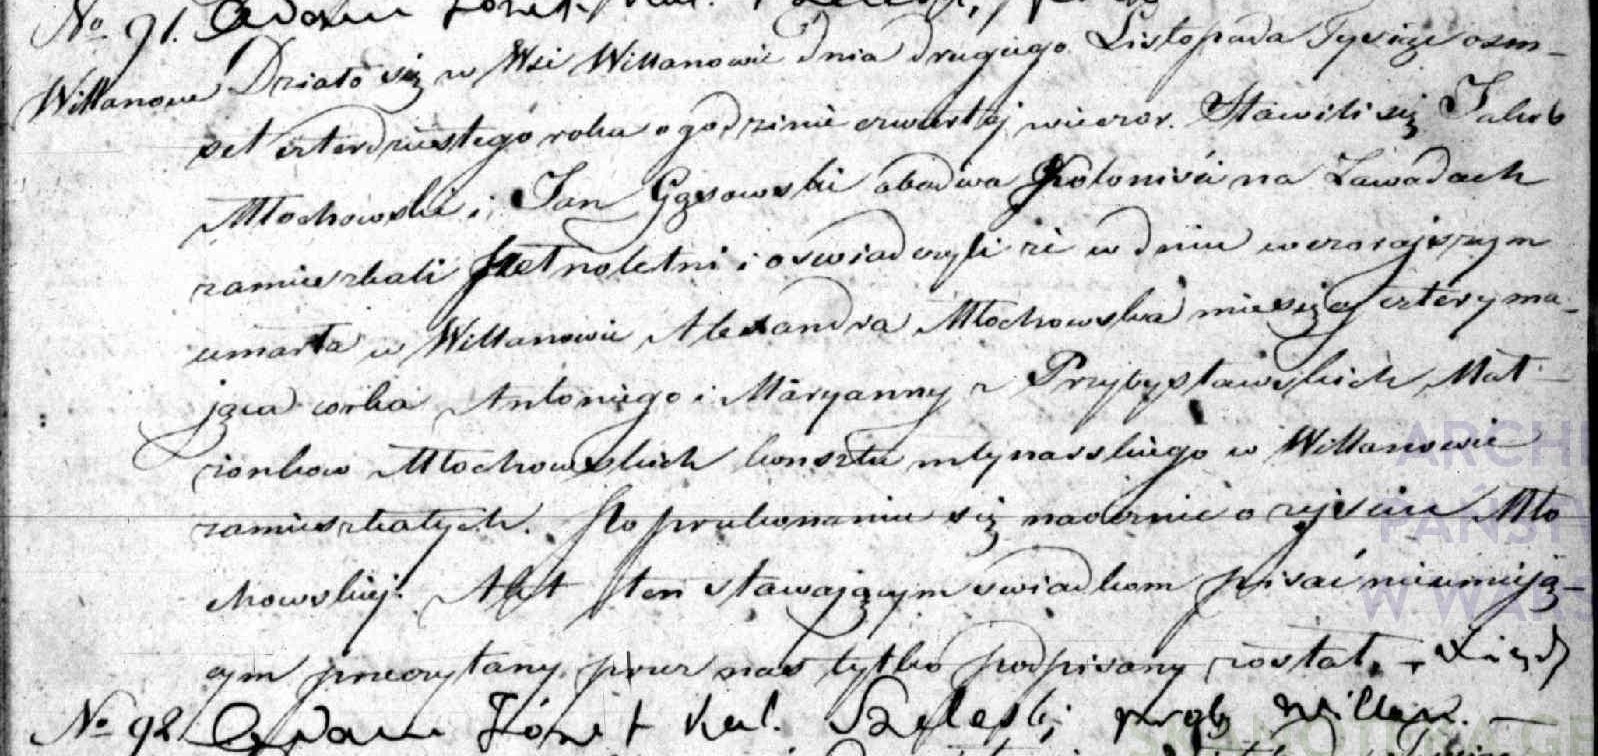 No 91. Adam Józef Kal.
Willanow Działo się w Wsi Willanowie dnia drugiego Listopada Tysiąc osm-
set czterdziestego roku o godzinie czwartej wieczor. Stawili się Jakob
Młochowski i Jan Gąsowski obadwa Koloniści na Zawadach
zamieszkali pełnoletni i oswiadczyli że w dniu wczorajszym
umarła w Willanowie Alexandra Młochowska miesięcy cztery ma-
jąca corka Antoniego i Maryanny z Przybysławskich Mał-
żonkow Młochowskich kunsztu młynarskiego w Willanowie
zamieszkałych. Po przekonaniu się naocznie o zejściu Mło
chowskiej. Akt ten stawającym swiadkom pisać nieumieją-
cym przeczytany przez nas tylko podpisany został. - Xiądz
No 92 Adam Józef Kal. Szeleski prob Willan. -
ARCHI
PAŃST
W WARS